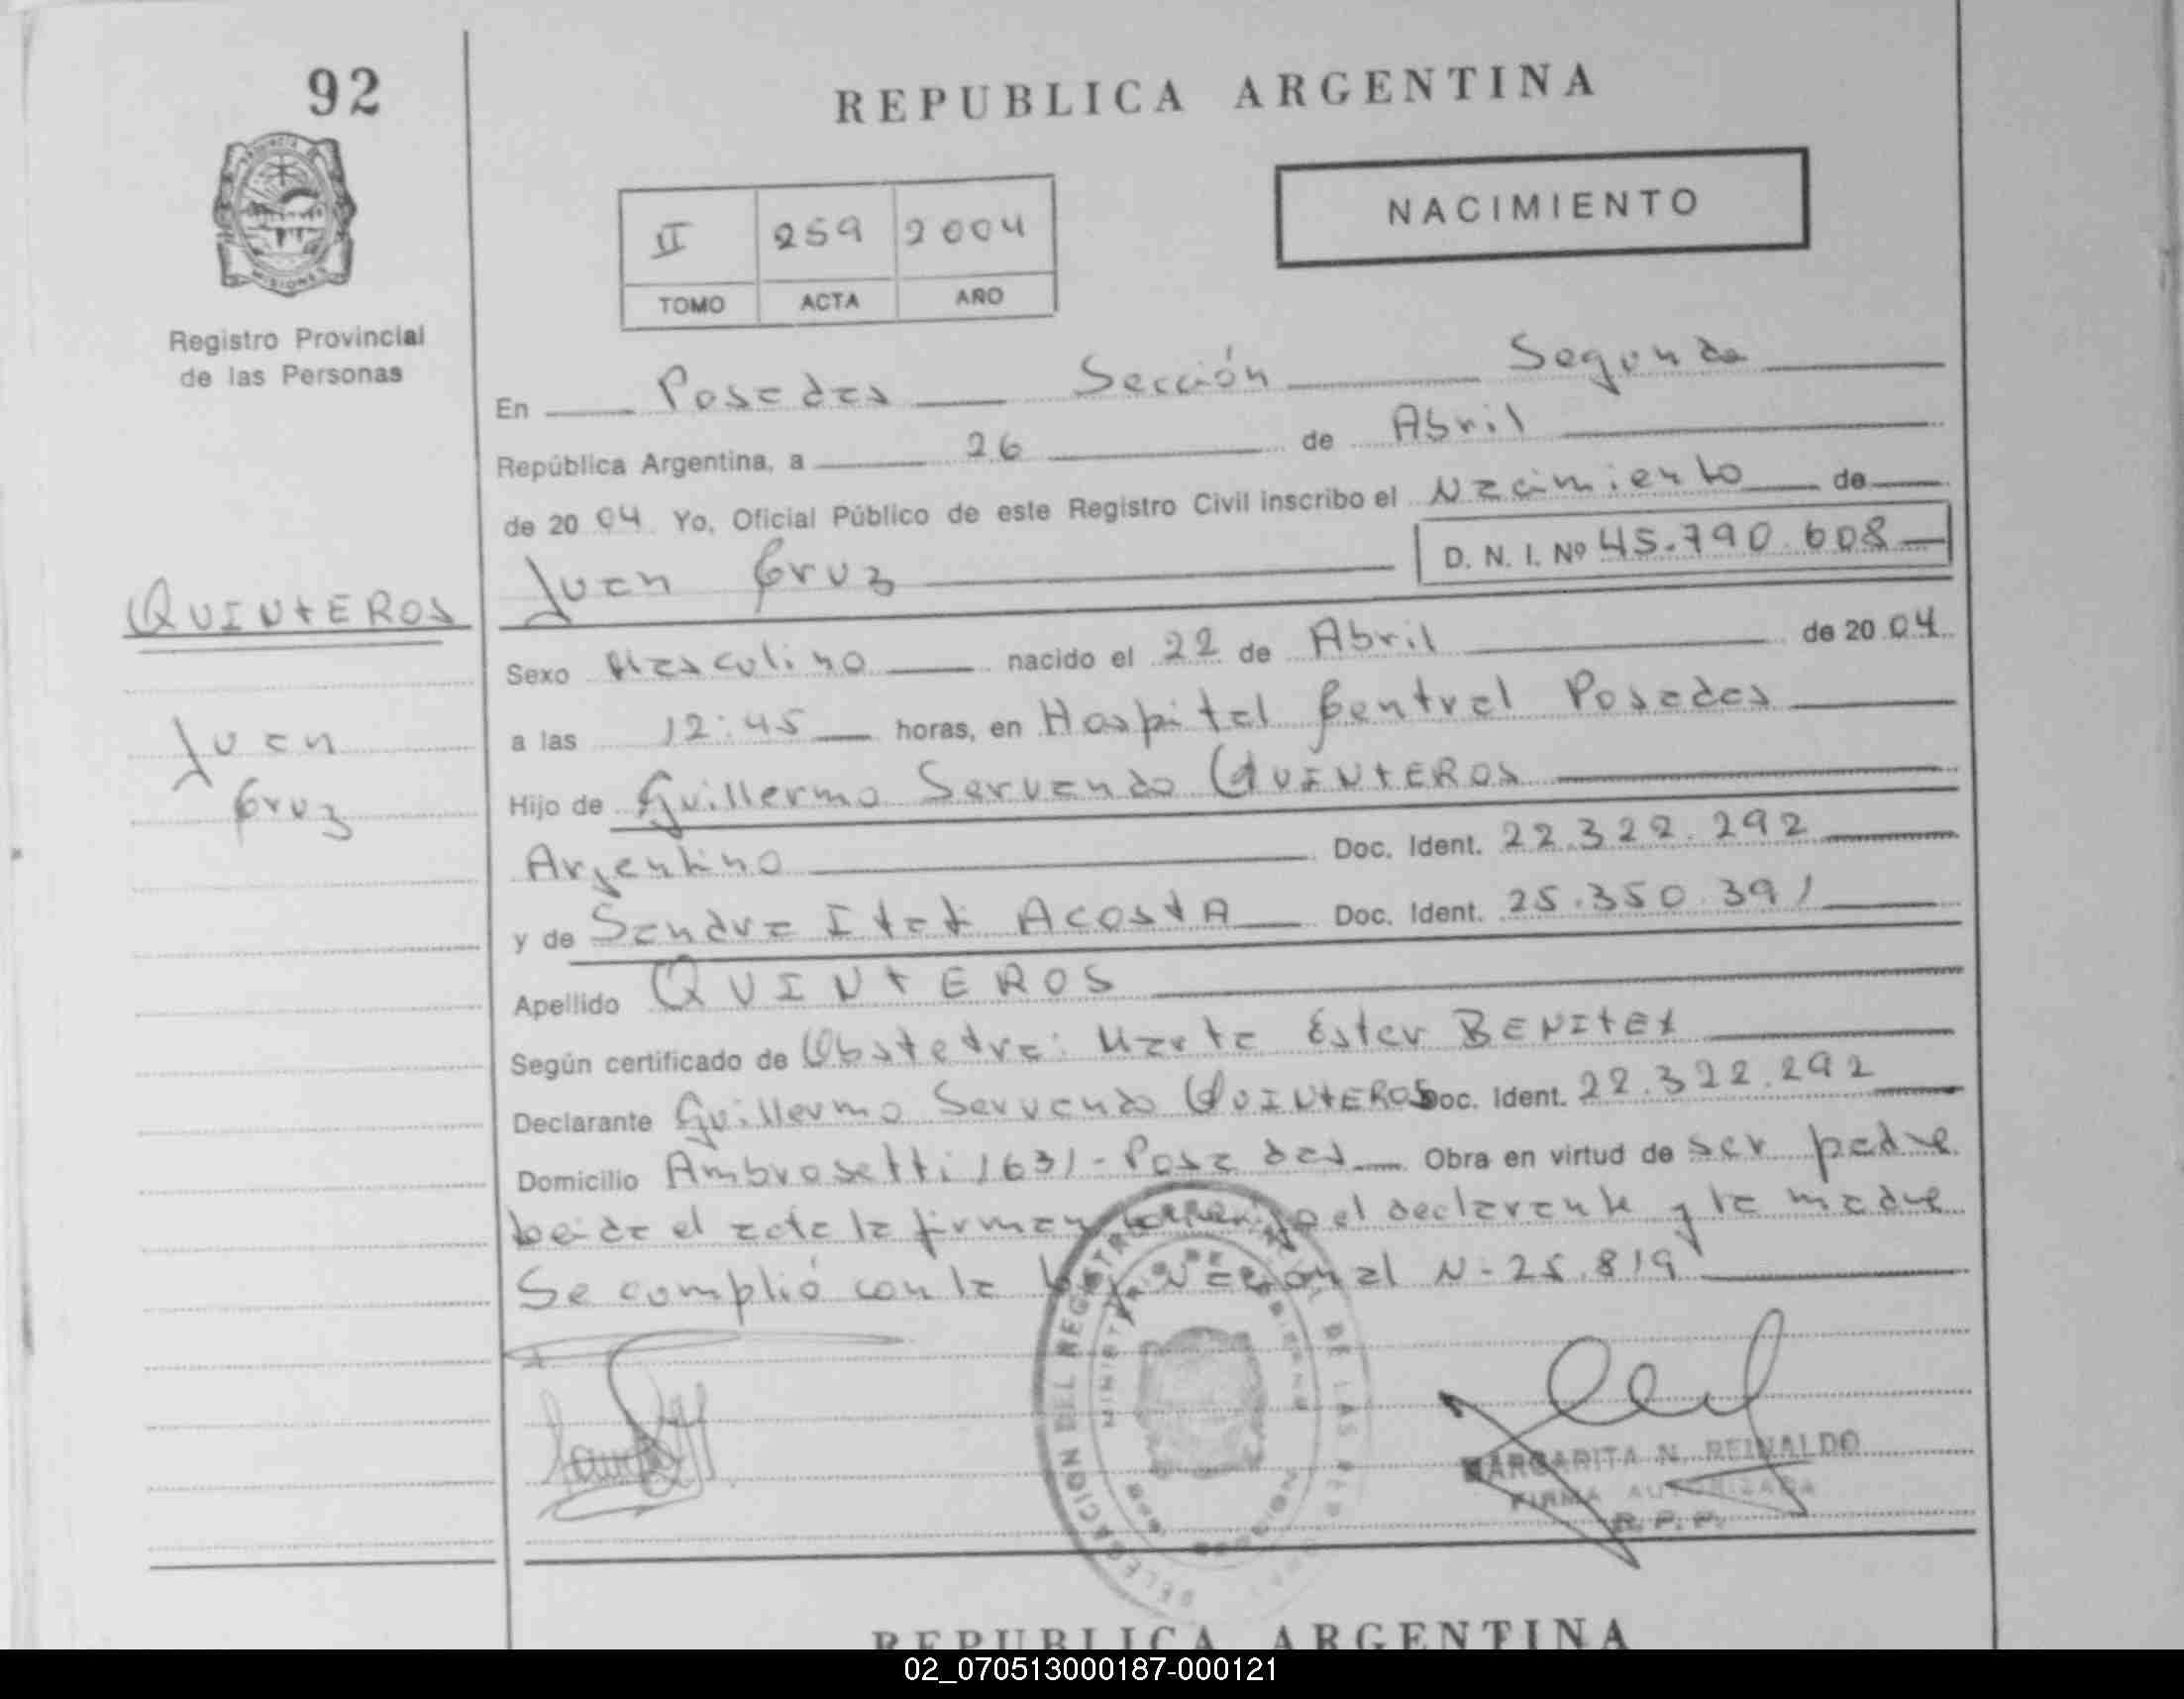 92
REPUBLICA ARGENTINA
NACIMIENTO
II 259 2004
TOMO ACTA AÑO
MISIONES
Registro Provincial
de las Personas
En Posadas Sección Segunda
República Argentina, a 26 de Abril
de 2004 Yo, Oficial Público de este Registro Civil inscribo el Nacimiento de
Juan Cruz D. N. I. Nº 45.790.608
QUINTEROS
Juan
Cruz
Sexo Masculino nacido el 22 de Abril de 2004
a las 12:45 horas, en Hospital Central Posadas
Hijo de Guillermo Servando QUINTEROS
Argentino Doc. Ident. 22.322.292
y de Sandra Itatí ACOSTA Doc. Ident. 25.350.391
Apellido QUINTEROS
Según certificado de Obstetra: Marta Ester BENITEZ
Declarante Guillermo Servando QUINTEROS Doc. Ident. 22.322.292
Domicilio Ambrosetti 1631 - Posadas Obra en virtud de ser padre
Leida el acta la firman conmigo el declarante y la madre
Se complió con la Ley Nacional N- 25.819
DELEGACION DEL REGISTRO DE LAS
MINISTERIO DE GOBIERNO
MISIONES
MARGARITA N. REINALDO
FIRMA AUTORIZADA
R. P. P.
REPUBLICA ARGENTINA
02_070513000187-000121